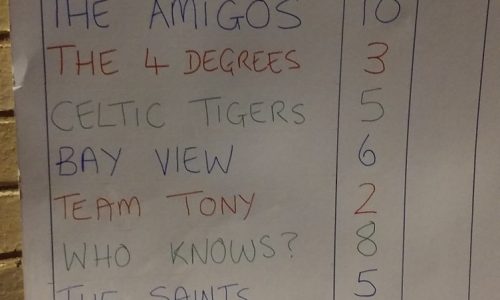 THE AMIGOS 10
THE 4 DEGREES 3
CELTIC TIGERS 5
BAY VIEW 6
TEAM TONY 2
WHO KNOWS? 8
THE SAINTS 5